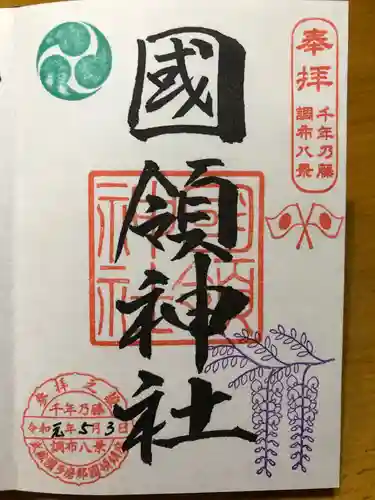 奉拝
千年乃藤
調布八景
國領神社
國領神社
参拝之証
千年乃藤
令和元年5月3日
調布八景